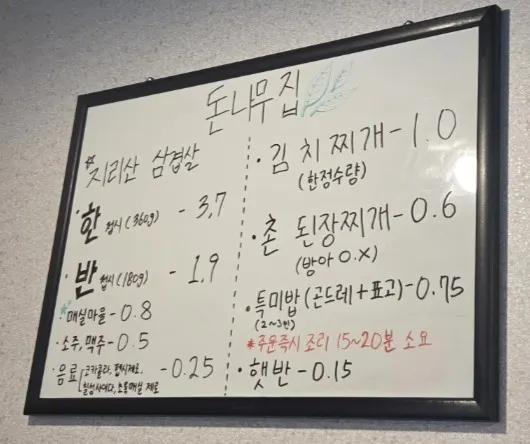 돈나무집
*지리산 삼겹살
·한접시(360g) - 3.7
·반접시(180g) - 1.9
*매실마을 - 0.8
·소주, 맥주 - 0.5
·음료 [코카콜라, 펩시제로, - 0.25
칠성사이다, 초록매실 제로
·김치찌개 - 1.0
(한정수량)
·촌 된장찌개 - 0.6
(방아 O.X)
·특미밥(곤드레+표고) - 0.75
(2~3인)
*주문즉시 조리 15~20분 소요
·햇반 - 0.15